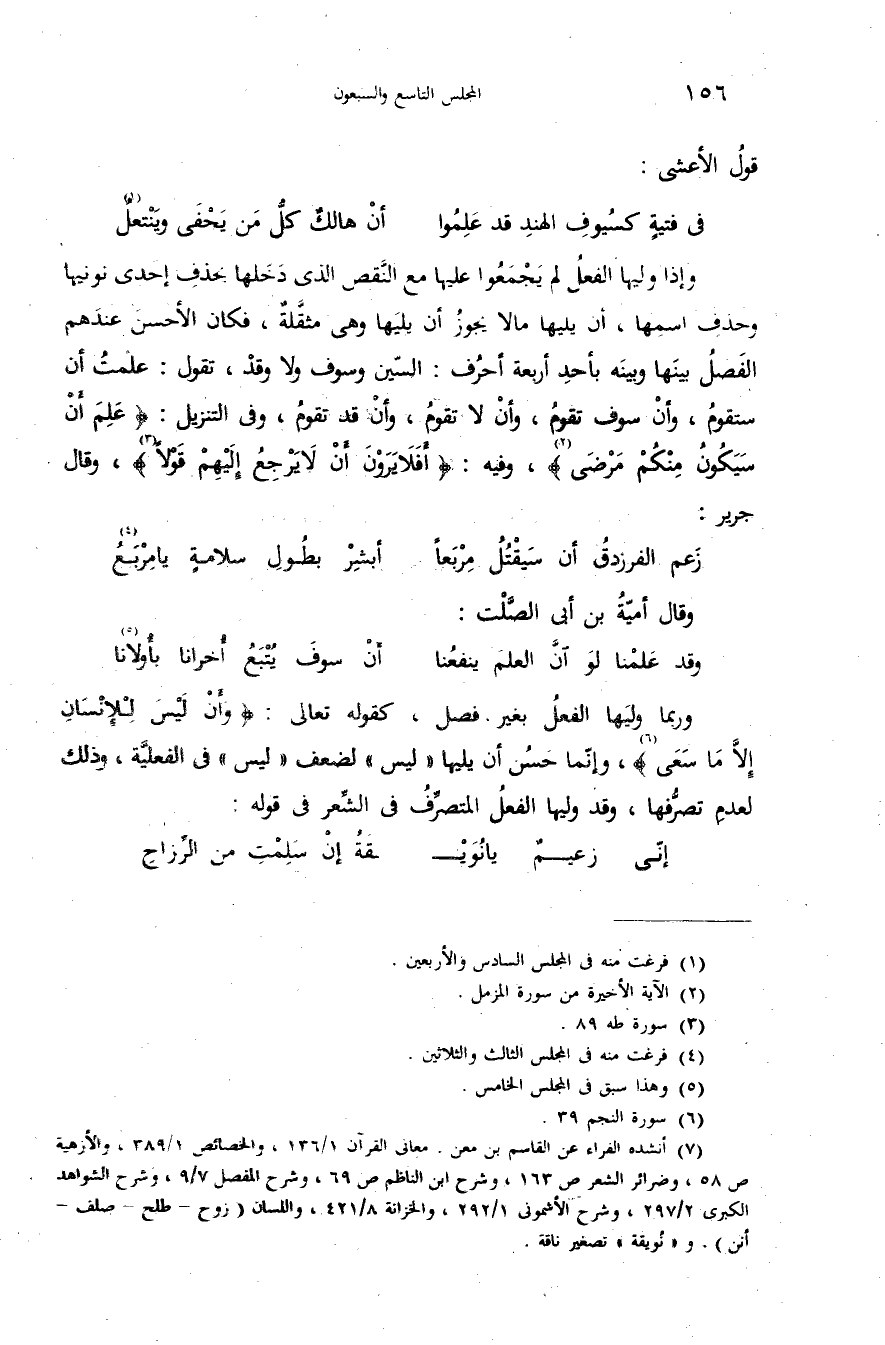 ١٥٦ المجلس التاسع والسبعون
قولُ الأعشى :
فى فتيةٍ كسُيوفِ الهندِ قد عَلِمُوا أنْ هالكٌ كلُّ مَن يَحْفَى ويَنْتعلُ(١)
وإذا وليها الفعلُ لم يَجْمَعُوا عليها مع النَّقص الذى دَخَلها بحذفِ إحدى نونيها
وحذفِ اسمِها ، أن يليها مالا يجوزُ أن يليَها وهى مثقَّلةٌ ، فكان الأحسنَ عندَهم
الفَصلُ بينَها وبينَه بأحدِ أربعة أحرُف : السّين وسوف ولا وقدْ ، تقول : علمتُ أن
ستقومُ ، وأنْ سوف تقومُ ، وأنْ لا تقومُ ، وأنْ قد تقومُ ، وفى التنزيل : ﴿ عَلِمَ أَنْ
سَيَكُونُ مِنْكُمْ مَرْضَى(٢) ﴾ ، وفيه : ﴿ أَفَلَايَرَوْنَ أَنْ لَايَرْجِعُ إِلَيْهِمْ قَوْلاً(٣) ﴾ ، وقال
جرير :
زَعم الفرزدقُ أن سَيَقْتُلُ مِرْبَعاً أبشِرْ بطُولِ سلامةٍ يامِرْبَعُ(٤)
وقال أميّةُ بن أبى الصَّلْت :
وقد عَلمْنا لوَ آنَّ العلمَ ينفعُنا أنْ سوفَ يُتْبَعُ أُخرانا بأُولانا(٥)
وربما وليَها الفعلُ بغير فصل ، كقوله تعالى : ﴿ وَأَنْ لَيْسَ لِلْإِنْسَانِ
إِلاَّ مَا سَعَى(٦) ﴾ ، وإنّما حَسُن أن يليَها « ليس » لضعف « ليس » فى الفعليَّة ، وذلك
لعدمِ تصرُّفها ، وقد وليها الفعلُ المتصرِّفُ فى الشِّعر فى قوله :
إنّى زعيمٌ يانُوَيْـ ـقَةُ إنْ سَلِمْتِ من الرِّزاحِ
(١) فرغت منه فى المجلس السادس والأربعين .
(٢) الآية الأخيرة من سورة المزمل .
(٣) سورة طه ٨٩ .
(٤) فرغت منه فى المجلس الثالث والثلاثين .
(٥) وهذا سبق فى المجلس الخامس .
(٦) سورة النجم ٣٩ .
(٧) أنشده الفراء عن القاسم بن معن . معانى القرآن ١٣٦/١ ، والخصائص ٣٨٩/١ ، والأزهية
ص ٥٨ ، وضرائر الشعر ص ١٦٣ ، وشرح ابن الناظم ص ٦٩ ، وشرح المفصل ٩/٧ ، وشرح الشواهد
الكبرى ٢٩٧/٢ ، وشرح الأشمونى ٢٩٢/١ ، والخزانة ٤٢١/٨ ، واللسان ( زوح – طلح – صلف –
أنن ) . و « نُويقة » تصغير ناقة .